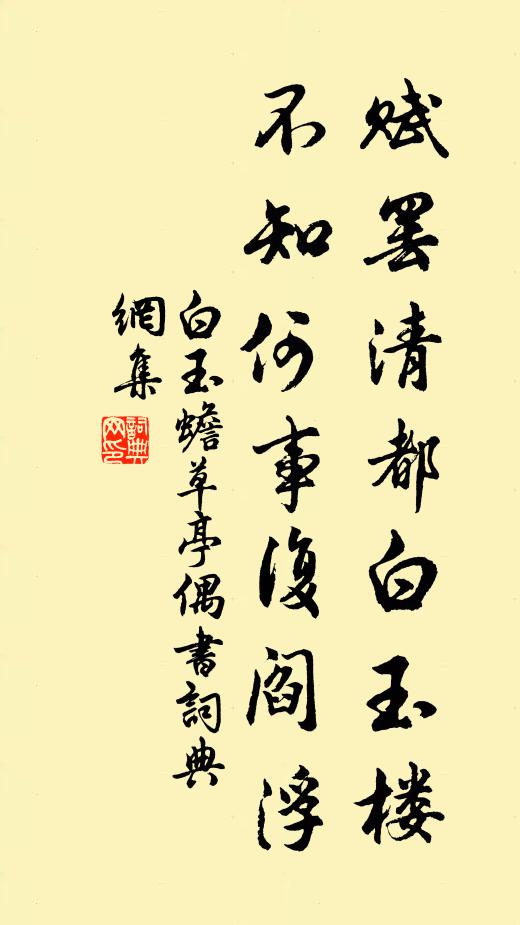 赋罢清都白玉楼
不知何事复阎浮
白玉蟾草亭偶書詞典
網集
詞典
网印